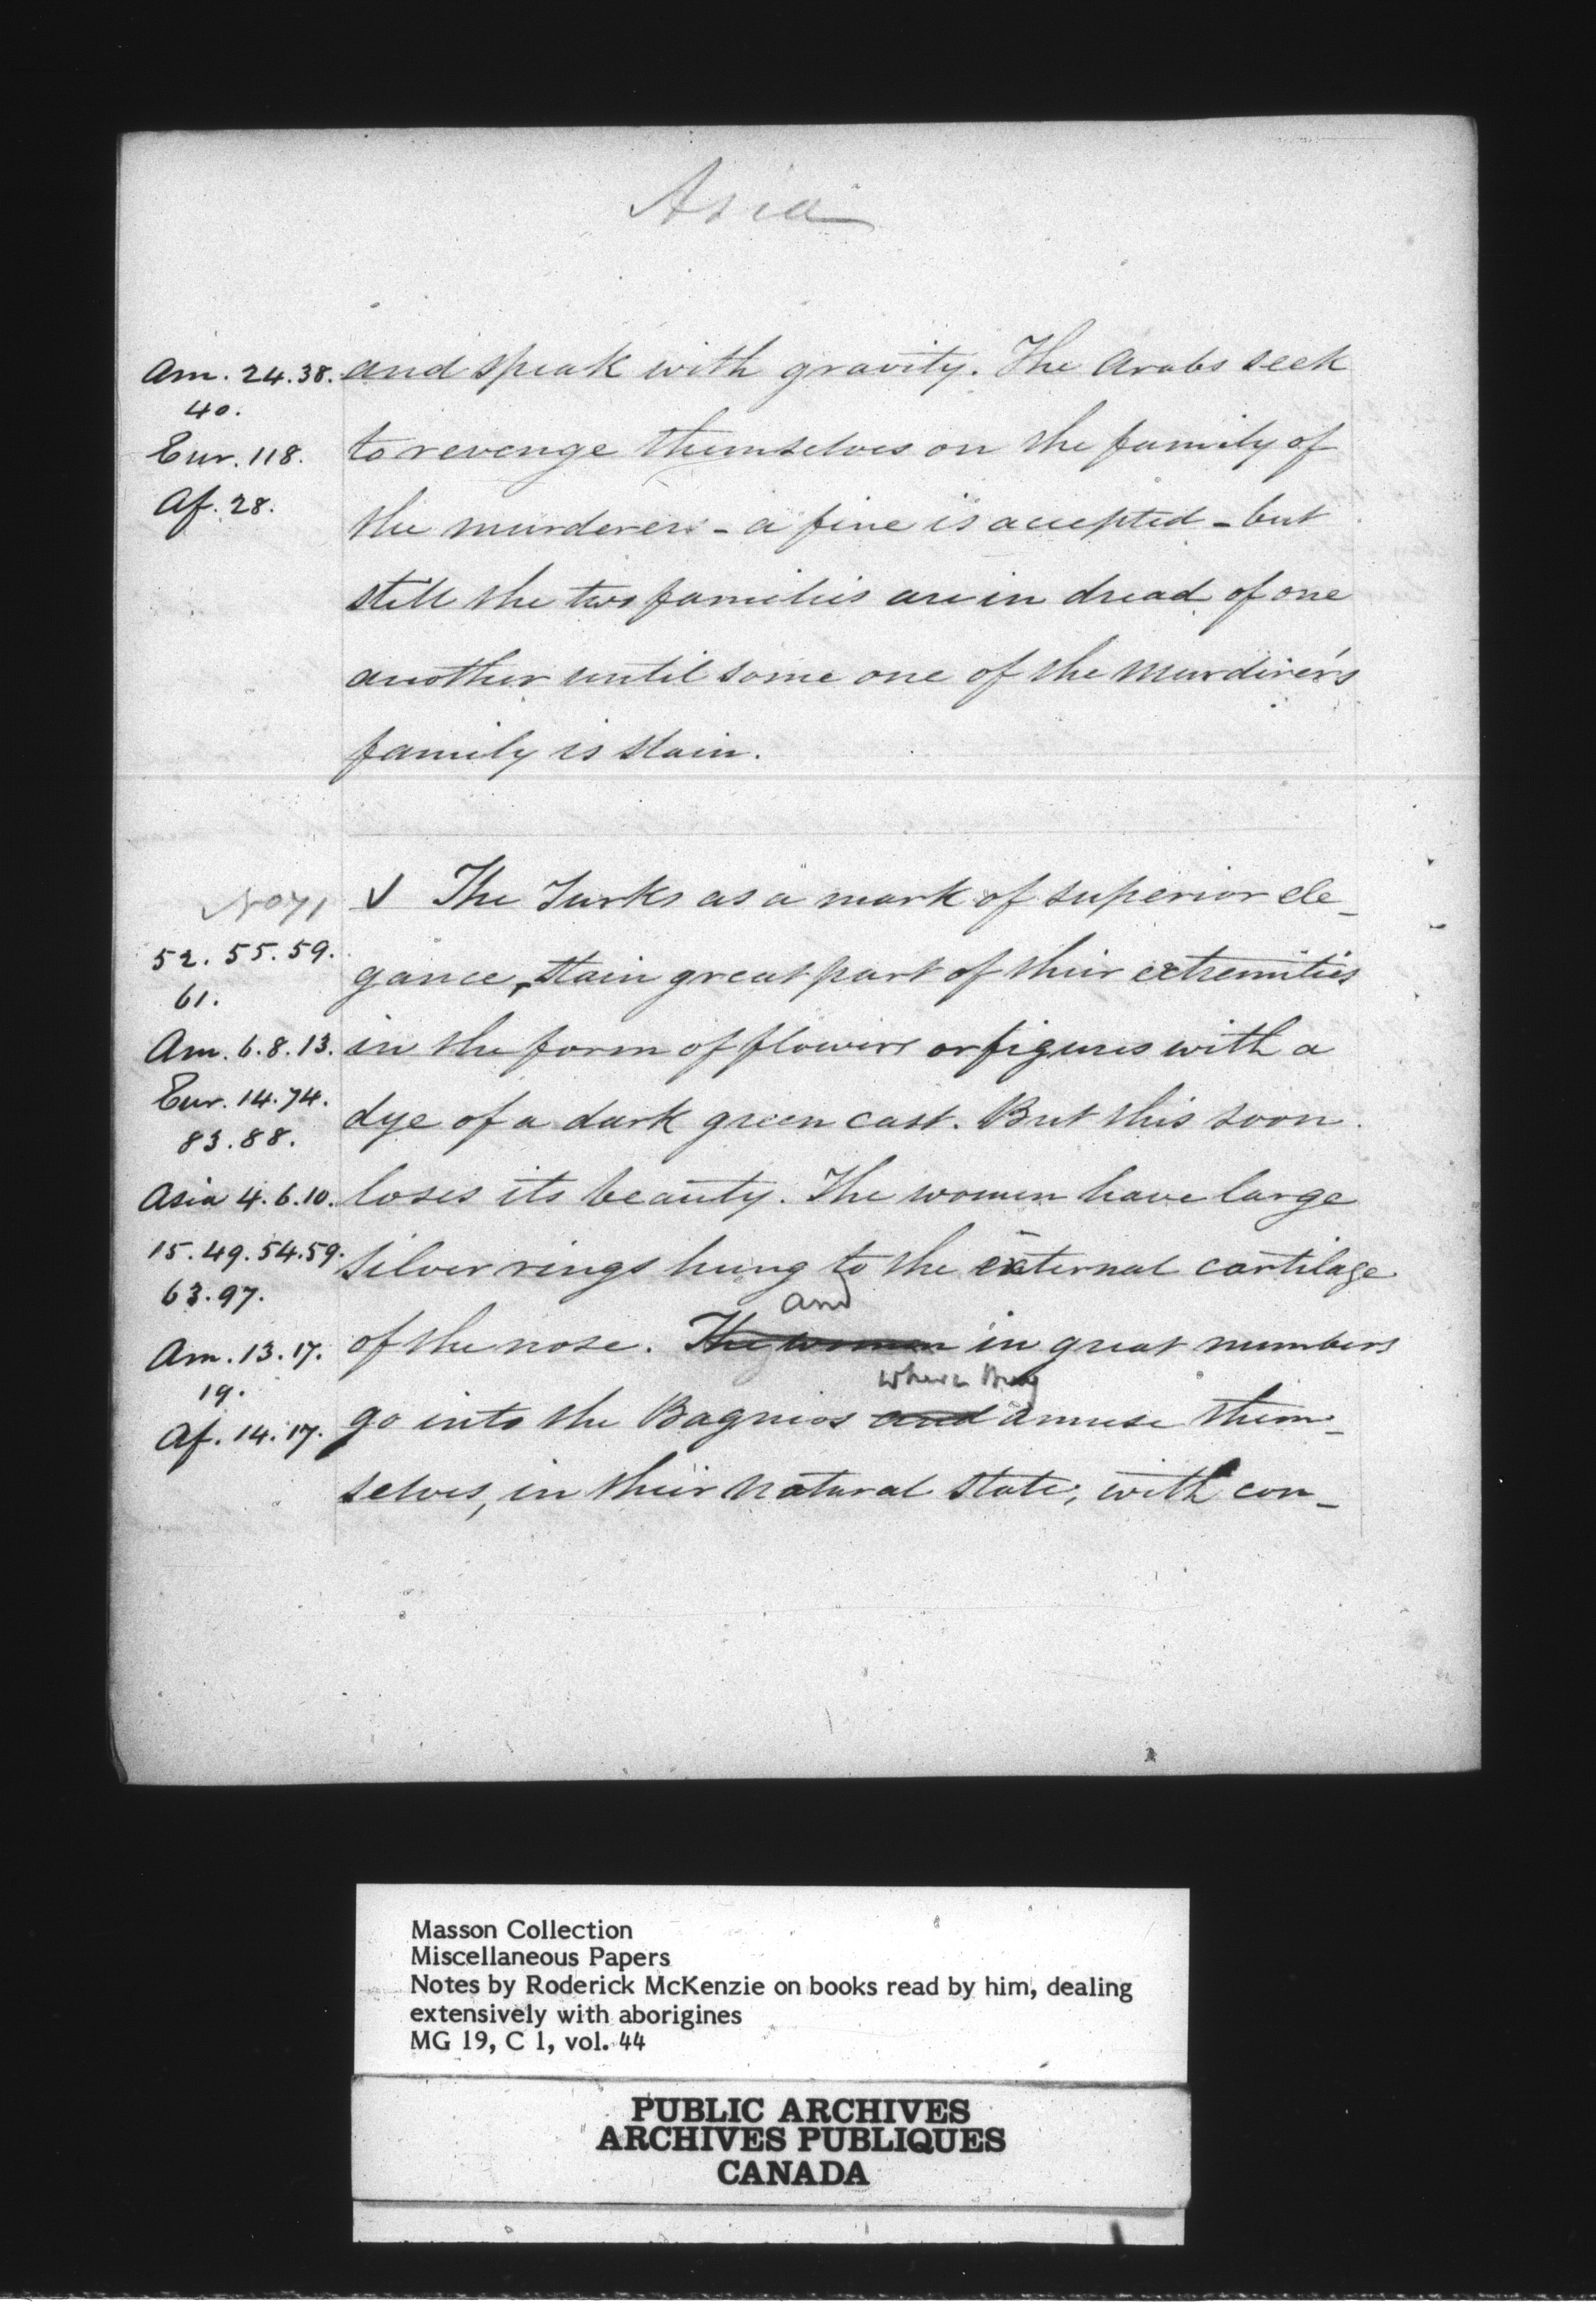 Asia
Am. 24.38. and speak with gravity. The Arabs seek
40.
Eur. 118. to revenge themselves on the family of
Af. 28. the murderers - a fine is accepted - but
still the two families are in dread of one
another until some one of the murdirer's
family is slain.
No 71 √ The Turks as a mark of superior ele-
52. 55. 59. gance, stain great part of their extremities
61.
Am. 6.8.13. in the form of flowers or figures with a
Eur. 14.74. dye of a dark green cast. But this soon
83.88.
Asia 4.6.10. loses its beauty. The women have large
15.49.54.59. silver rings hung to the external cartilage
63.97.
and
Am. 13.17. of the nose. The women in great numbers
19.
where they
Af. 14.17. go into the Bagnios and amuse them-
selves, in their natural state, with con-
Masson Collection
Miscellaneous Papers
Notes by Roderick McKenzie on books read by him, dealing
extensively with aborigines
MG 19, C 1, vol. 44
PUBLIC ARCHIVES
ARCHIVES PUBLIQUES
CANADA